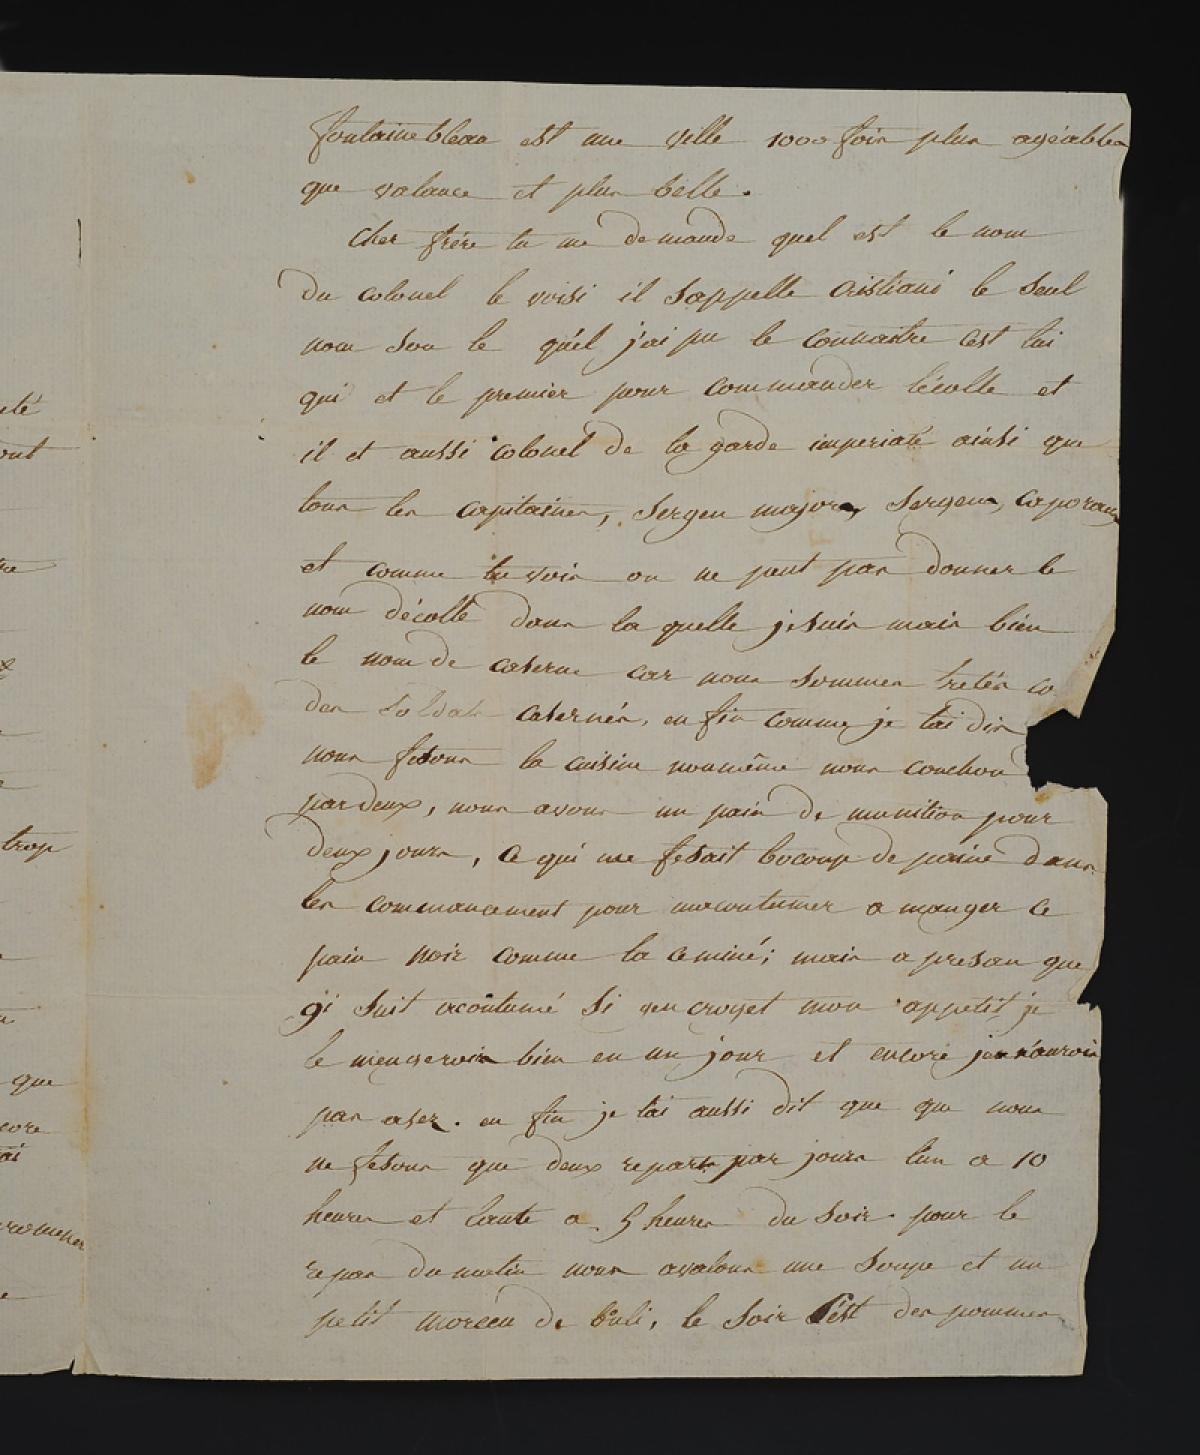 fontainebleau est une ville 1000 fois plus agéables
que valance et plus belle.
Cher frére tu me demande quel est le nom
du colonel le voisi il s'appelle Cristiani le seul
nom sou le quél j'ai pu le connaitre cest lui
qui et le premier pour commander lécolle et
il et aussi colonel de la garde imperiale ainsi que
tous les capitaines, sergen majors, sergens, caporaux
et comme tu vois on ne peut pas donner le
nom décolle dans la quelle je suis mais bien
le nom de caserne car nous sommes tretés co
des soldats casernés, en fin comme je tai dis
nous fesons la cuisine noumême nous couchons
par deux, nous avons un pain de munition pour
deux jours, ce qui me fesait bocoup de paine dans
les commancement pour macoutumer a manger ce
pain noir comme la ceminé; mais a presan que
gi suit acoutumé si gen croyet mon appetit je
le mengerois bien en un jour et encore jen n'aurois
pas aser. en fin je tai aussi dit que que nous
ne fesons que deux repas par jours lun a 10
heures et laute a 5 heures du soir. pour le
repas du matin nous avalons une soupe et un
petit morceu de buli, le soir c'est des pommes
eté
ont
trop
que
core
ai
romener